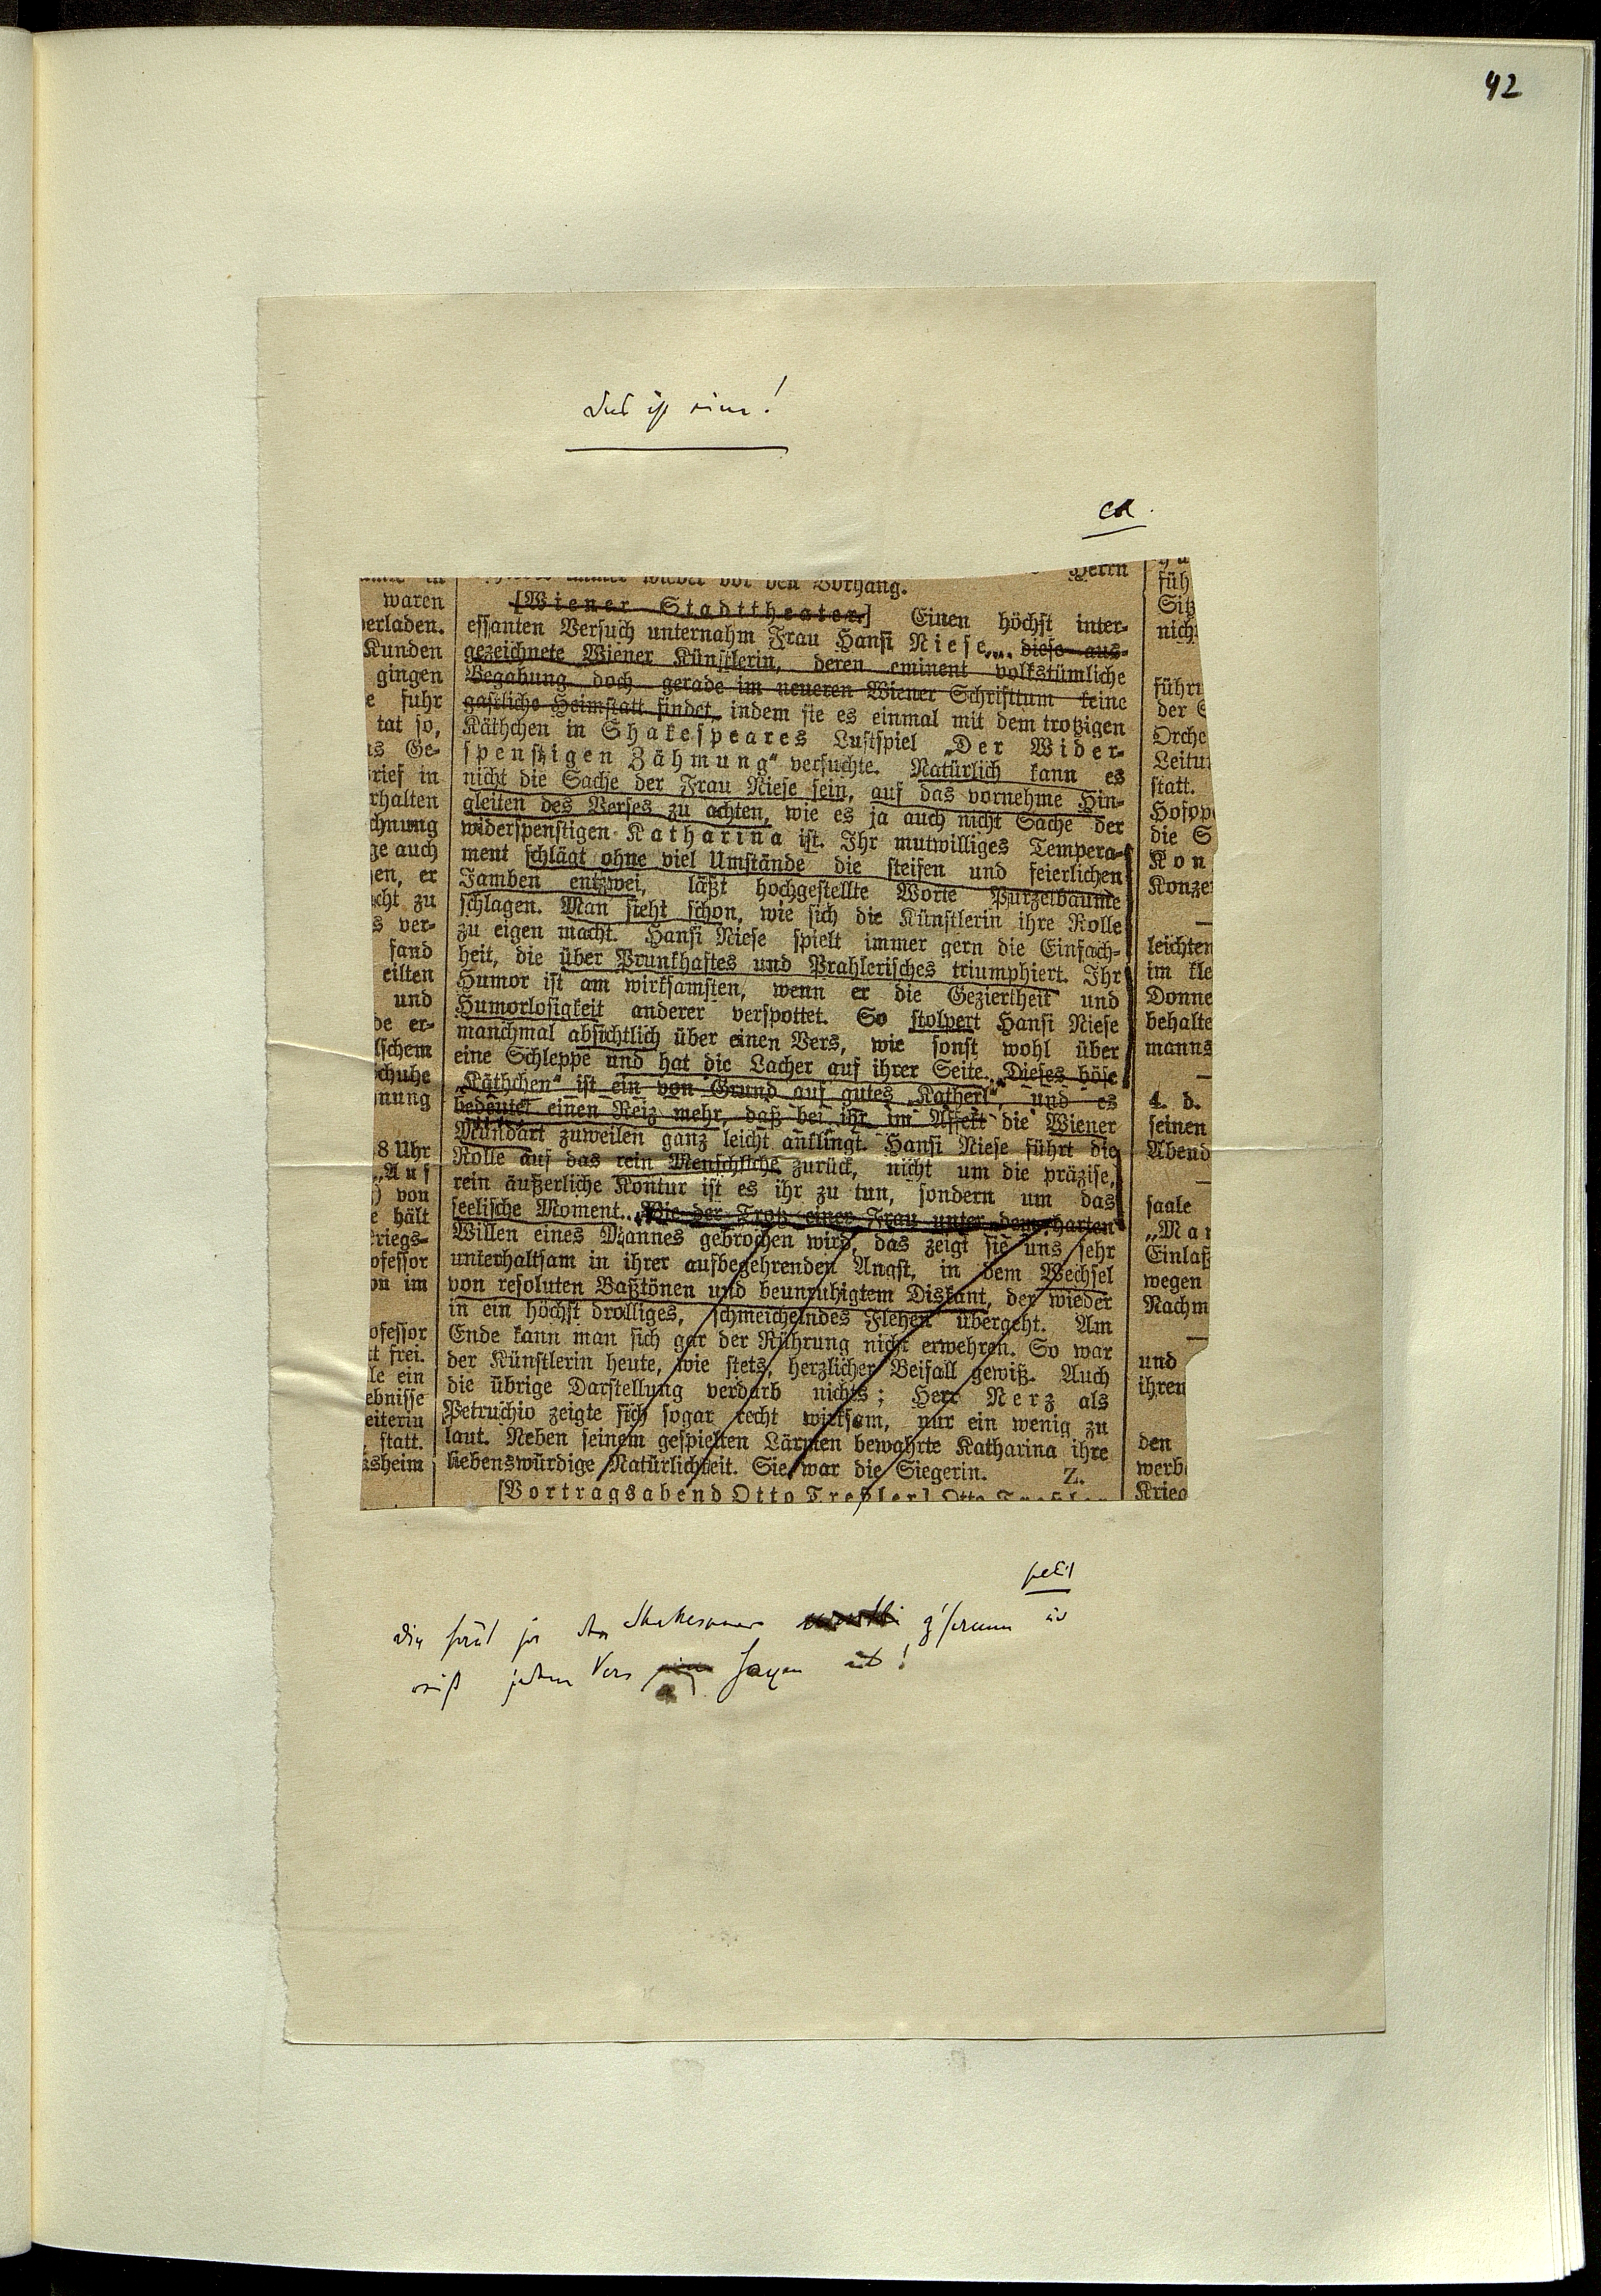 42
Das ist eine!
cd.
Herrn
immer wieder vor den Vorhang.
[Wiener Stadttheater.] Einen höchst inter-
essanten Versuch unternahm Frau Hansi Niese ... diese aus-
gezeichnete Wiener Künstlerin, deren eminent volkstümliche
Begabung doch gerade im neueren Wiener Schrifttum keine
gastliche Heimstatt findet, indem sie es einmal mit dem trotzigen
Käthchen in Shakespeares Lustspiel „Der Wider-
spenstigen Zähmung“ versuchte. Natürlich kann es
nicht die Sache der Frau Niese sein, auf das vornehme Hin-
gleiten des Verses zu achten, wie es ja auch nicht Sache der
widerspenstigen Katharina ist. Ihr mutwilliges Tempera-
ment schlägt ohne viel Umstände die steifen und feierlichen
Jamben entzwei, läßt hochgestellte Worte Purzelbäume
schlagen. Man sieht schon, wie sich die Künstlerin ihre Rolle
zu eigen macht. Hansi Niese spielt immer gern die Einfach-
heit, die über Prunkhaftes und Prahlerisches triumphiert. Ihr
Humor ist am wirksamsten, wenn er die Geziertheit und
Humorlosigkeit anderer verspottet. So stolpert Hansi Niese
manchmal absichtlich über einen Vers, wie sonst wohl über
eine Schleppe und hat die Lacher auf ihrer Seite. Dieses böse
„Käthchen“ ist ein von Grund auf gutes „Katherl“, und es
bedeutet einen Reiz mehr, daß bei ihr im Affekt die Wiener
Mundart zuweilen ganz leicht anklingt. Hansi Niese führt die
Rolle auf das rein Menschliche zurück, nicht um die präzise,
rein äußerliche Kontur ist es ihr zu tun, sondern um das
seelische Moment. Wie der Trotz einer Frau unter dem harten
Willen eines Mannes gebrochen wird, das zeigt sie uns sehr
unterhaltsam in ihrer aufbegehrenden Angst, in dem Wechsel
von resoluten Baßtönen und beunruhigtem Diskant, der wieder
in ein höchst drolliges, schmeichelndes Flehen übergeht. Am
Ende kann man sich gar der Rührung nicht erwehren. So war
der Künstlerin heute, wie stets, herzlicher Beifall gewiß. Auch
die übrige Darstellung verdarb nichts; Herr Nerz als
Petruchio zeigte sich sogar recht wirksam, nur ein wenig zu
laut. Neben seinem gespielten Lärmen bewahrte Katharina ihre
liebenswürdige Natürlichkeit. Sie war die Siegerin. Z.
[Vortragsabend Otto Treßler] Otto Treßler
waren
verladen.
Kunden
gingen
e fuhr
tat so,
as Ge-
rief in
rhalten
chnung
ge auch
en, er
cht zu
s ver-
fand
eilten
und
de er-
lschem
chuhe
nung
8 Uhr
„Auf
) von
e hält
riegs-
ofessor
on im
ofessor
tt frei.
le ein
ebnisse
eiterin
statt.
ksheim
füh
Sitz
nich
führ
der
Orche
Leitu
statt.
Hofop
die S
Kon
Konze
leichten
im kle
Donne
behalte
manns
4. d.
seinen
Abend
saale
„Mar
Einlaß
wegen
Nachm
und
ihren
den
werb
Krieg
petit
die haut ja den Shakespeare z'samm und
reißt jeden Vers aus!